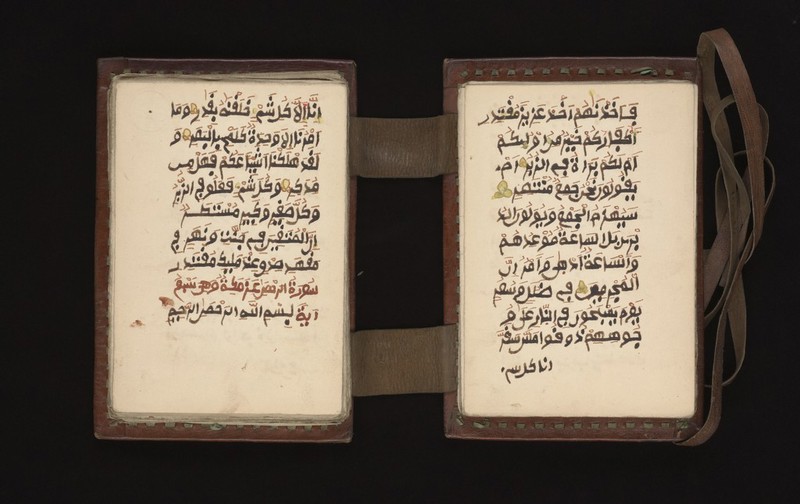 فأخذنهم أخذ عزيز مقتدر
أكفاركم خير من أوليكم
أم لكم براءة في الزبر أم
يقولون نحن جميع منتصر
سيهزم الجمع ويولون الد
بر بل الساعة موعدهم
والساعة أدهى وأمر إن
المجرمين في ضلل وسعر
يوم يسحبون في النار على و
جوههم ذوقوا مس سقر
انا كل شي
إنا كل شيء خلقنه بقدر وما
أمرنا إلا وحدة كلمح بالبصر و
لقد أهلكنا أشياعكم فهل من
مدكر وكل شيء فعلوه في الزبر
وكل صغير وكبير مستطر
إن المتقين في جنت ونهر في
مقعد صدق عند مليك مقتدر
سورة الرحمن مكية وهي سبع
آية بسم الله الرحمن الرحيم